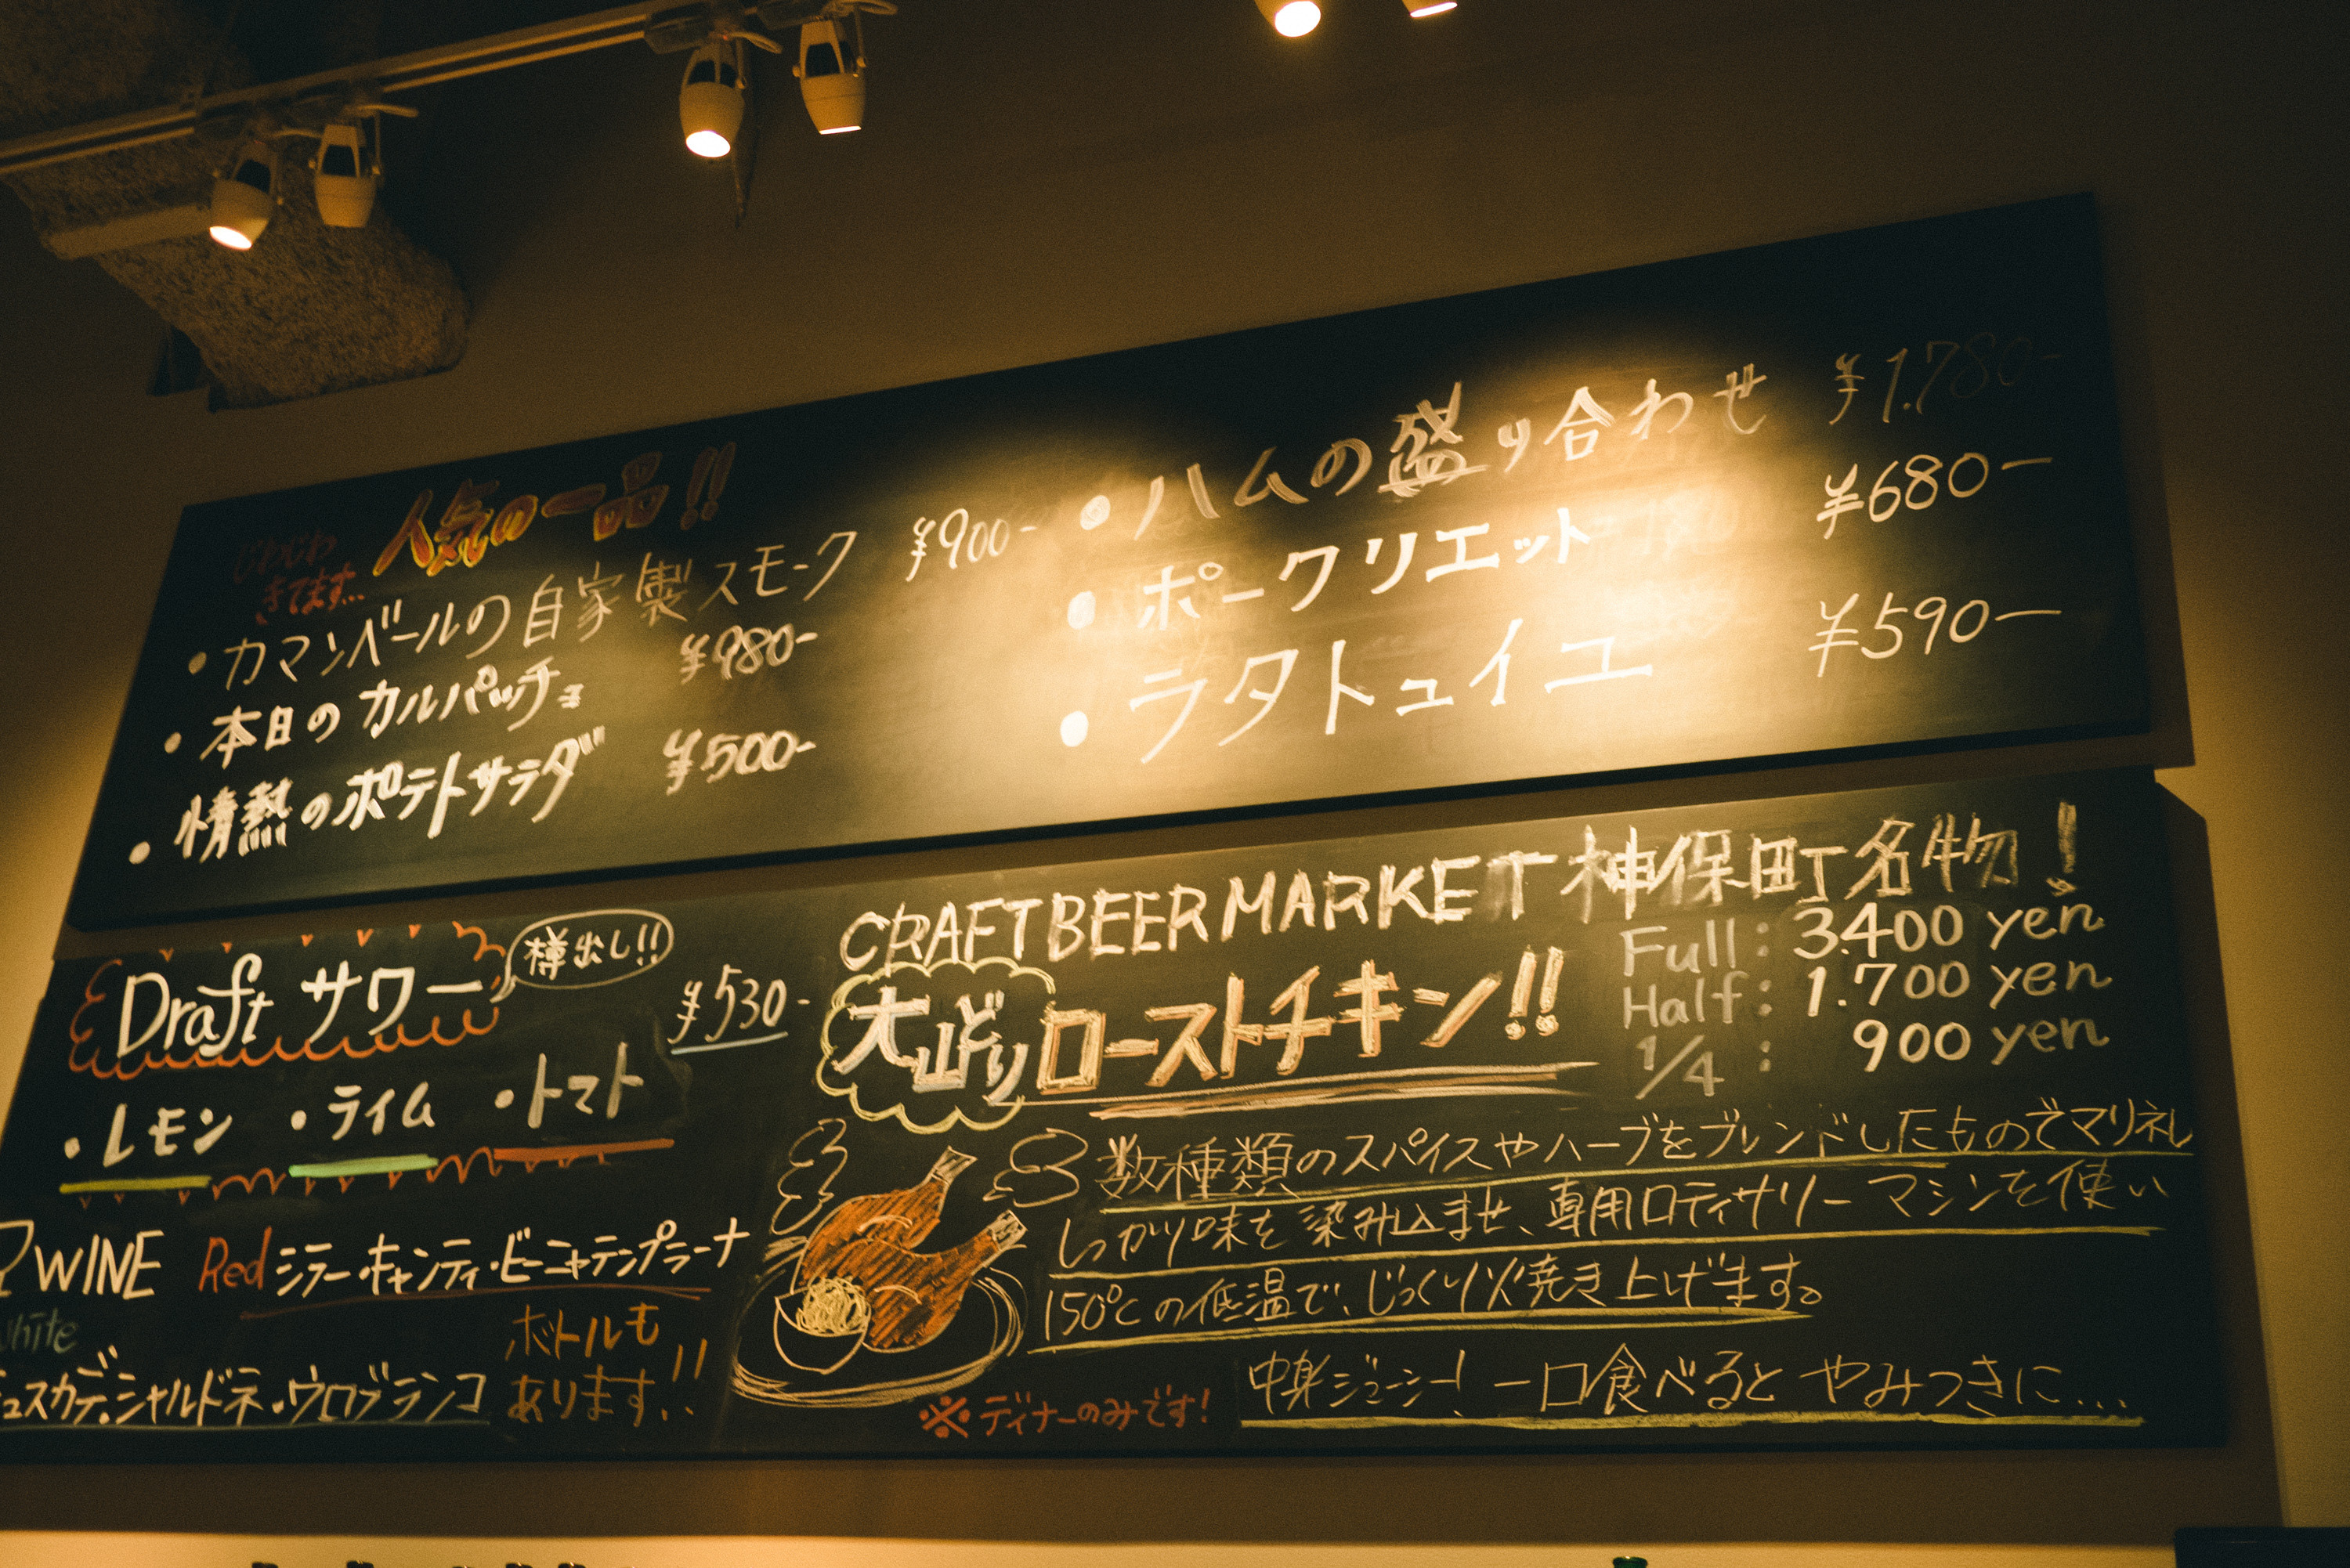 じわじわ
きてます...
人気の一品!!
・カマンベールの自家製スモーク ¥900-
・本日のカルパッチョ ¥980-
・情熱のポテトサラダ ¥500-
・ハムの盛り合わせ ¥1.780-
・ポークリエット ¥680-
・ラタトゥイユ ¥590-
Draft サワー
樽出し!!
¥530-
・レモン ・ライム ・トマト
WINE Red シラー・キャンティ・ビーニャテンプラーナ
White
ュスカデ・シャルドネ・ウロブランコ
ボトルも
あります!!
CRAFT BEER MARKET 神保町名物!
大山どりローストチキン!!
Full: 3.400 yen
Half: 1.700 yen
1/4: 900 yen
数種類のスパイスやハーブをブレンドしたものでマリネし
しっかり味を染み込ませ、専用ロティサリーマシンを使い
150℃の低温で、じっくり火焼き上げます。
中身ジューシー!一口食べるとやみつきに...
※ディナーのみです!